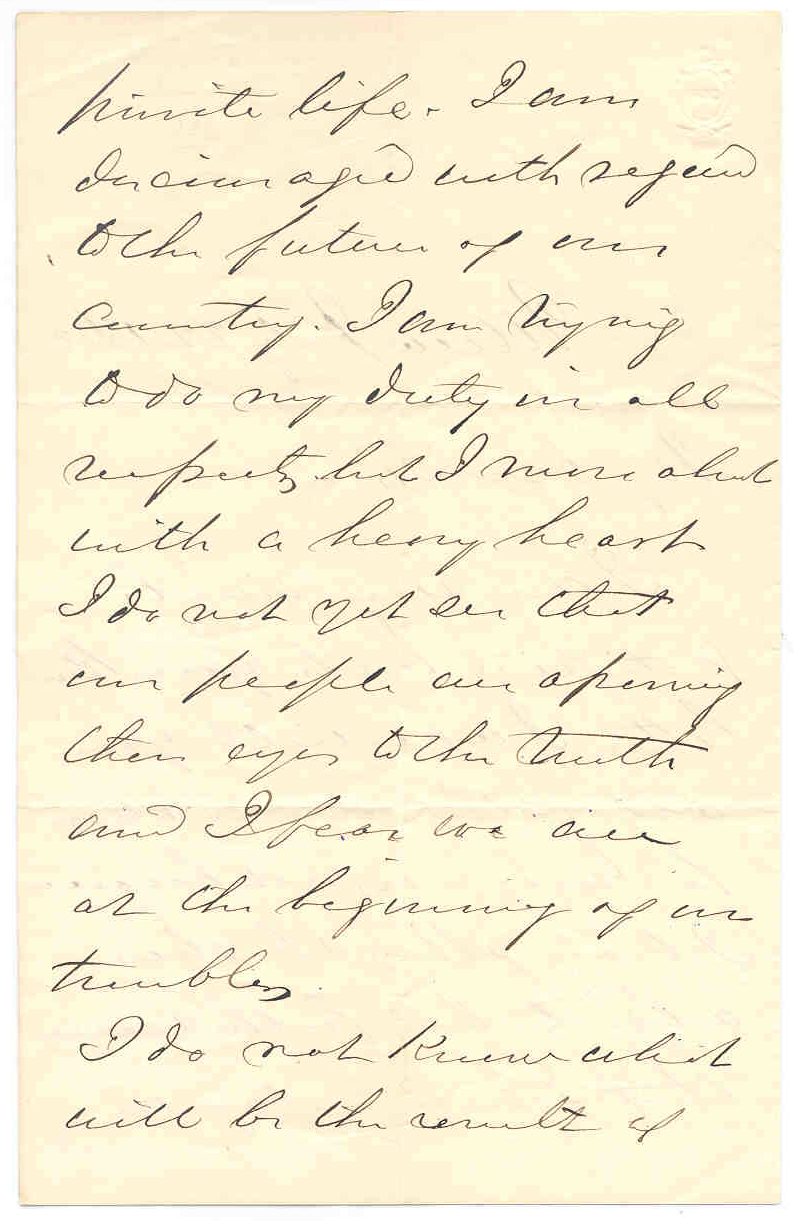 private life. I am
discouraged with regard
to the future of our
country. I am trying
to do my duty in all
respects, but I move about
with a heavy heart
I do not yet see that
our people are opening
their eyes to the truth
and I fear we are
at the beginning of our
troubles.
I do not know what
will be the result of